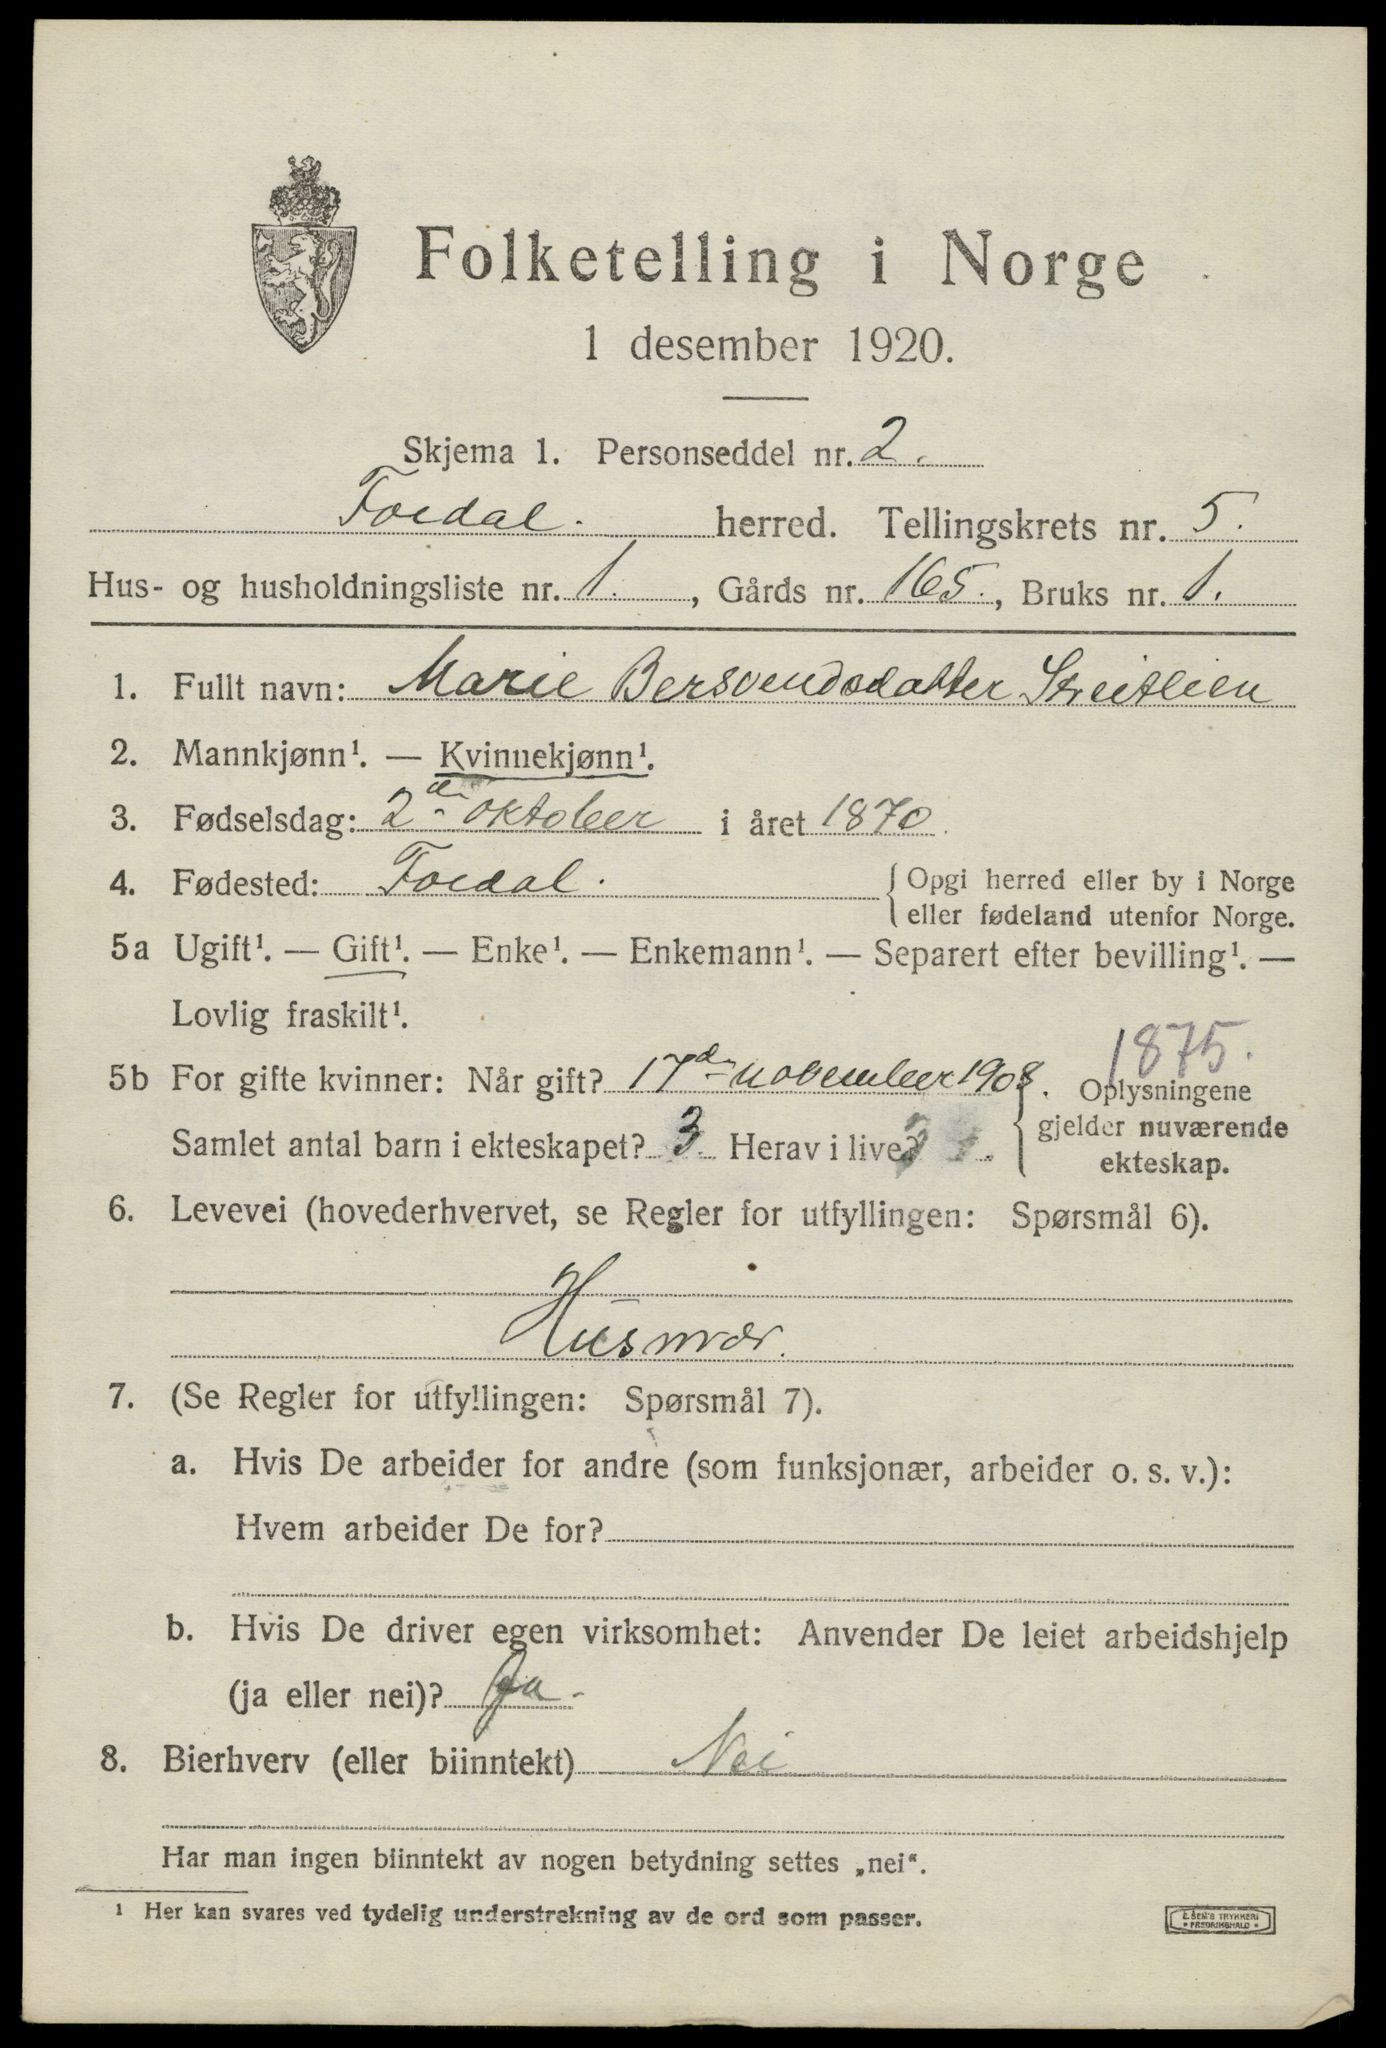 Folketelling i Norge
1 desember 1920.
Skjema 1. Personseddel nr. 2.
Foldal. herred. Tellingskrets nr. 5.
Hus- og husholdningsliste nr. 1. , Gårds nr. 165. , Bruks nr. 1.
1. Fullt navn: Marie Bersvendsdatter Streitlien
2. Mannkjønn¹. — Kvinnekjønn¹.
3. Fødselsdag: 2den oktober i året 1870.
4. Fødested: Foldal. { Opgi herred eller by i Norge
eller fødeland utenfor Norge.
5a Ugift¹. — Gift¹. — Enke¹. — Enkemann¹. — Separert efter bevilling¹. —
Lovlig fraskilt¹.
1875.
5b For gifte kvinner: Når gift? 17de november 1908. Oplysningene
gjelder nuværende
Samlet antal barn i ekteskapet? 3 Herav i live? 3
ekteskap.
6. Levevei (hovederhvervet, se Regler for utfyllingen: Spørsmål 6).
Husmor.
7. (Se Regler for utfyllingen: Spørsmål 7).
a. Hvis De arbeider for andre (som funksjonær, arbeider o. s. v.):
Hvem arbeider De for?
b. Hvis De driver egen virksomhet: Anvender De leiet arbeidshjelp
(ja eller nei)? Ja.
8. Bierhverv (eller biinntekt) Nei
Har man ingen biinntekt av nogen betydning settes „nei“.
¹ Her kan svares ved tydelig understrekning av de ord som passer.
E. SEM'S TRYKKERI
* FREDRIKSHALD *